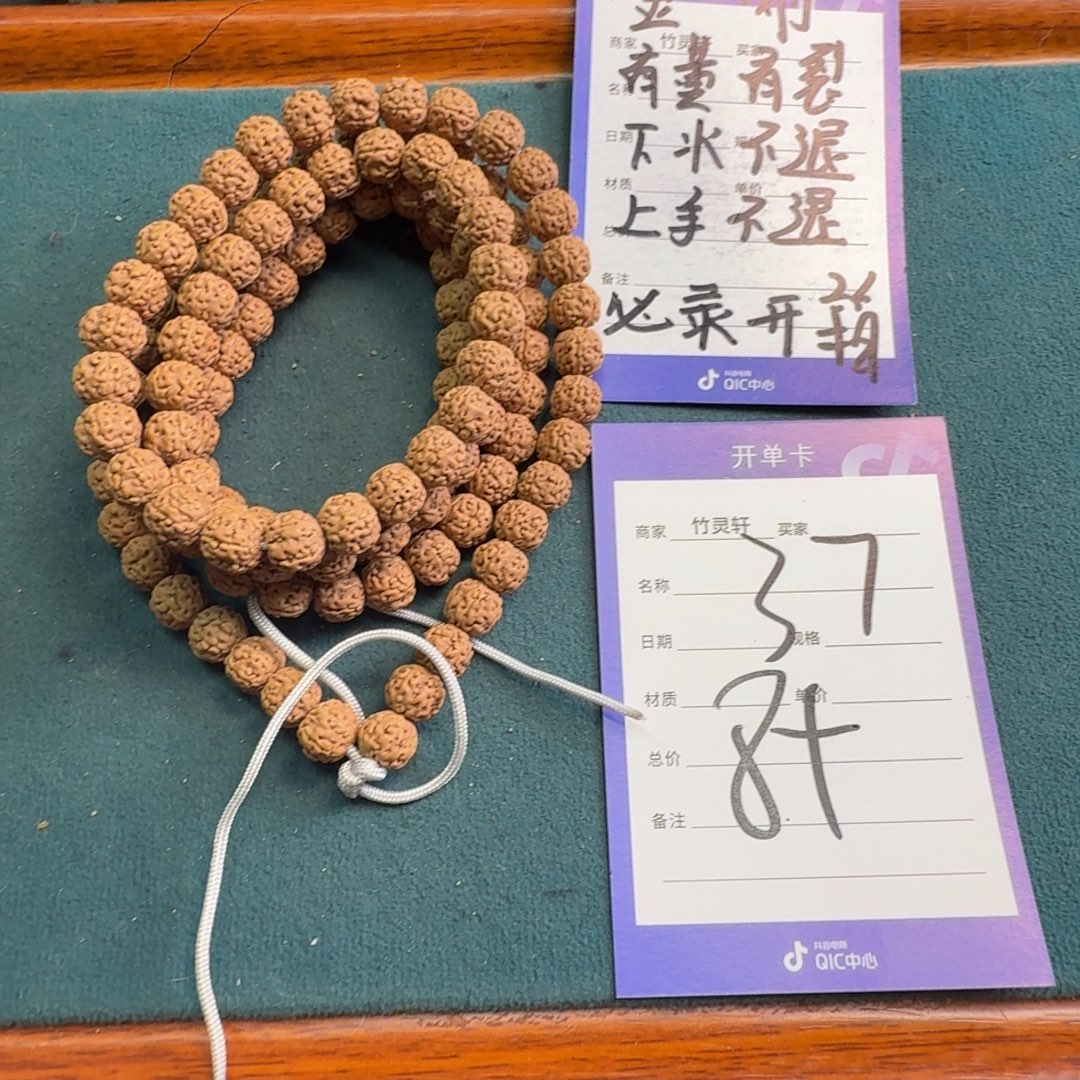 商家 竹灵轩 买家
有量 有裂
名称
日期
下水 不退
材质 单价
上手 不退
备注
必录开箱
抖音电商
QIC中心
开单卡
商家 竹灵轩 买家
37
名称
日期 规格
材质 单价
84
总价
备注
抖音电商
QIC中心